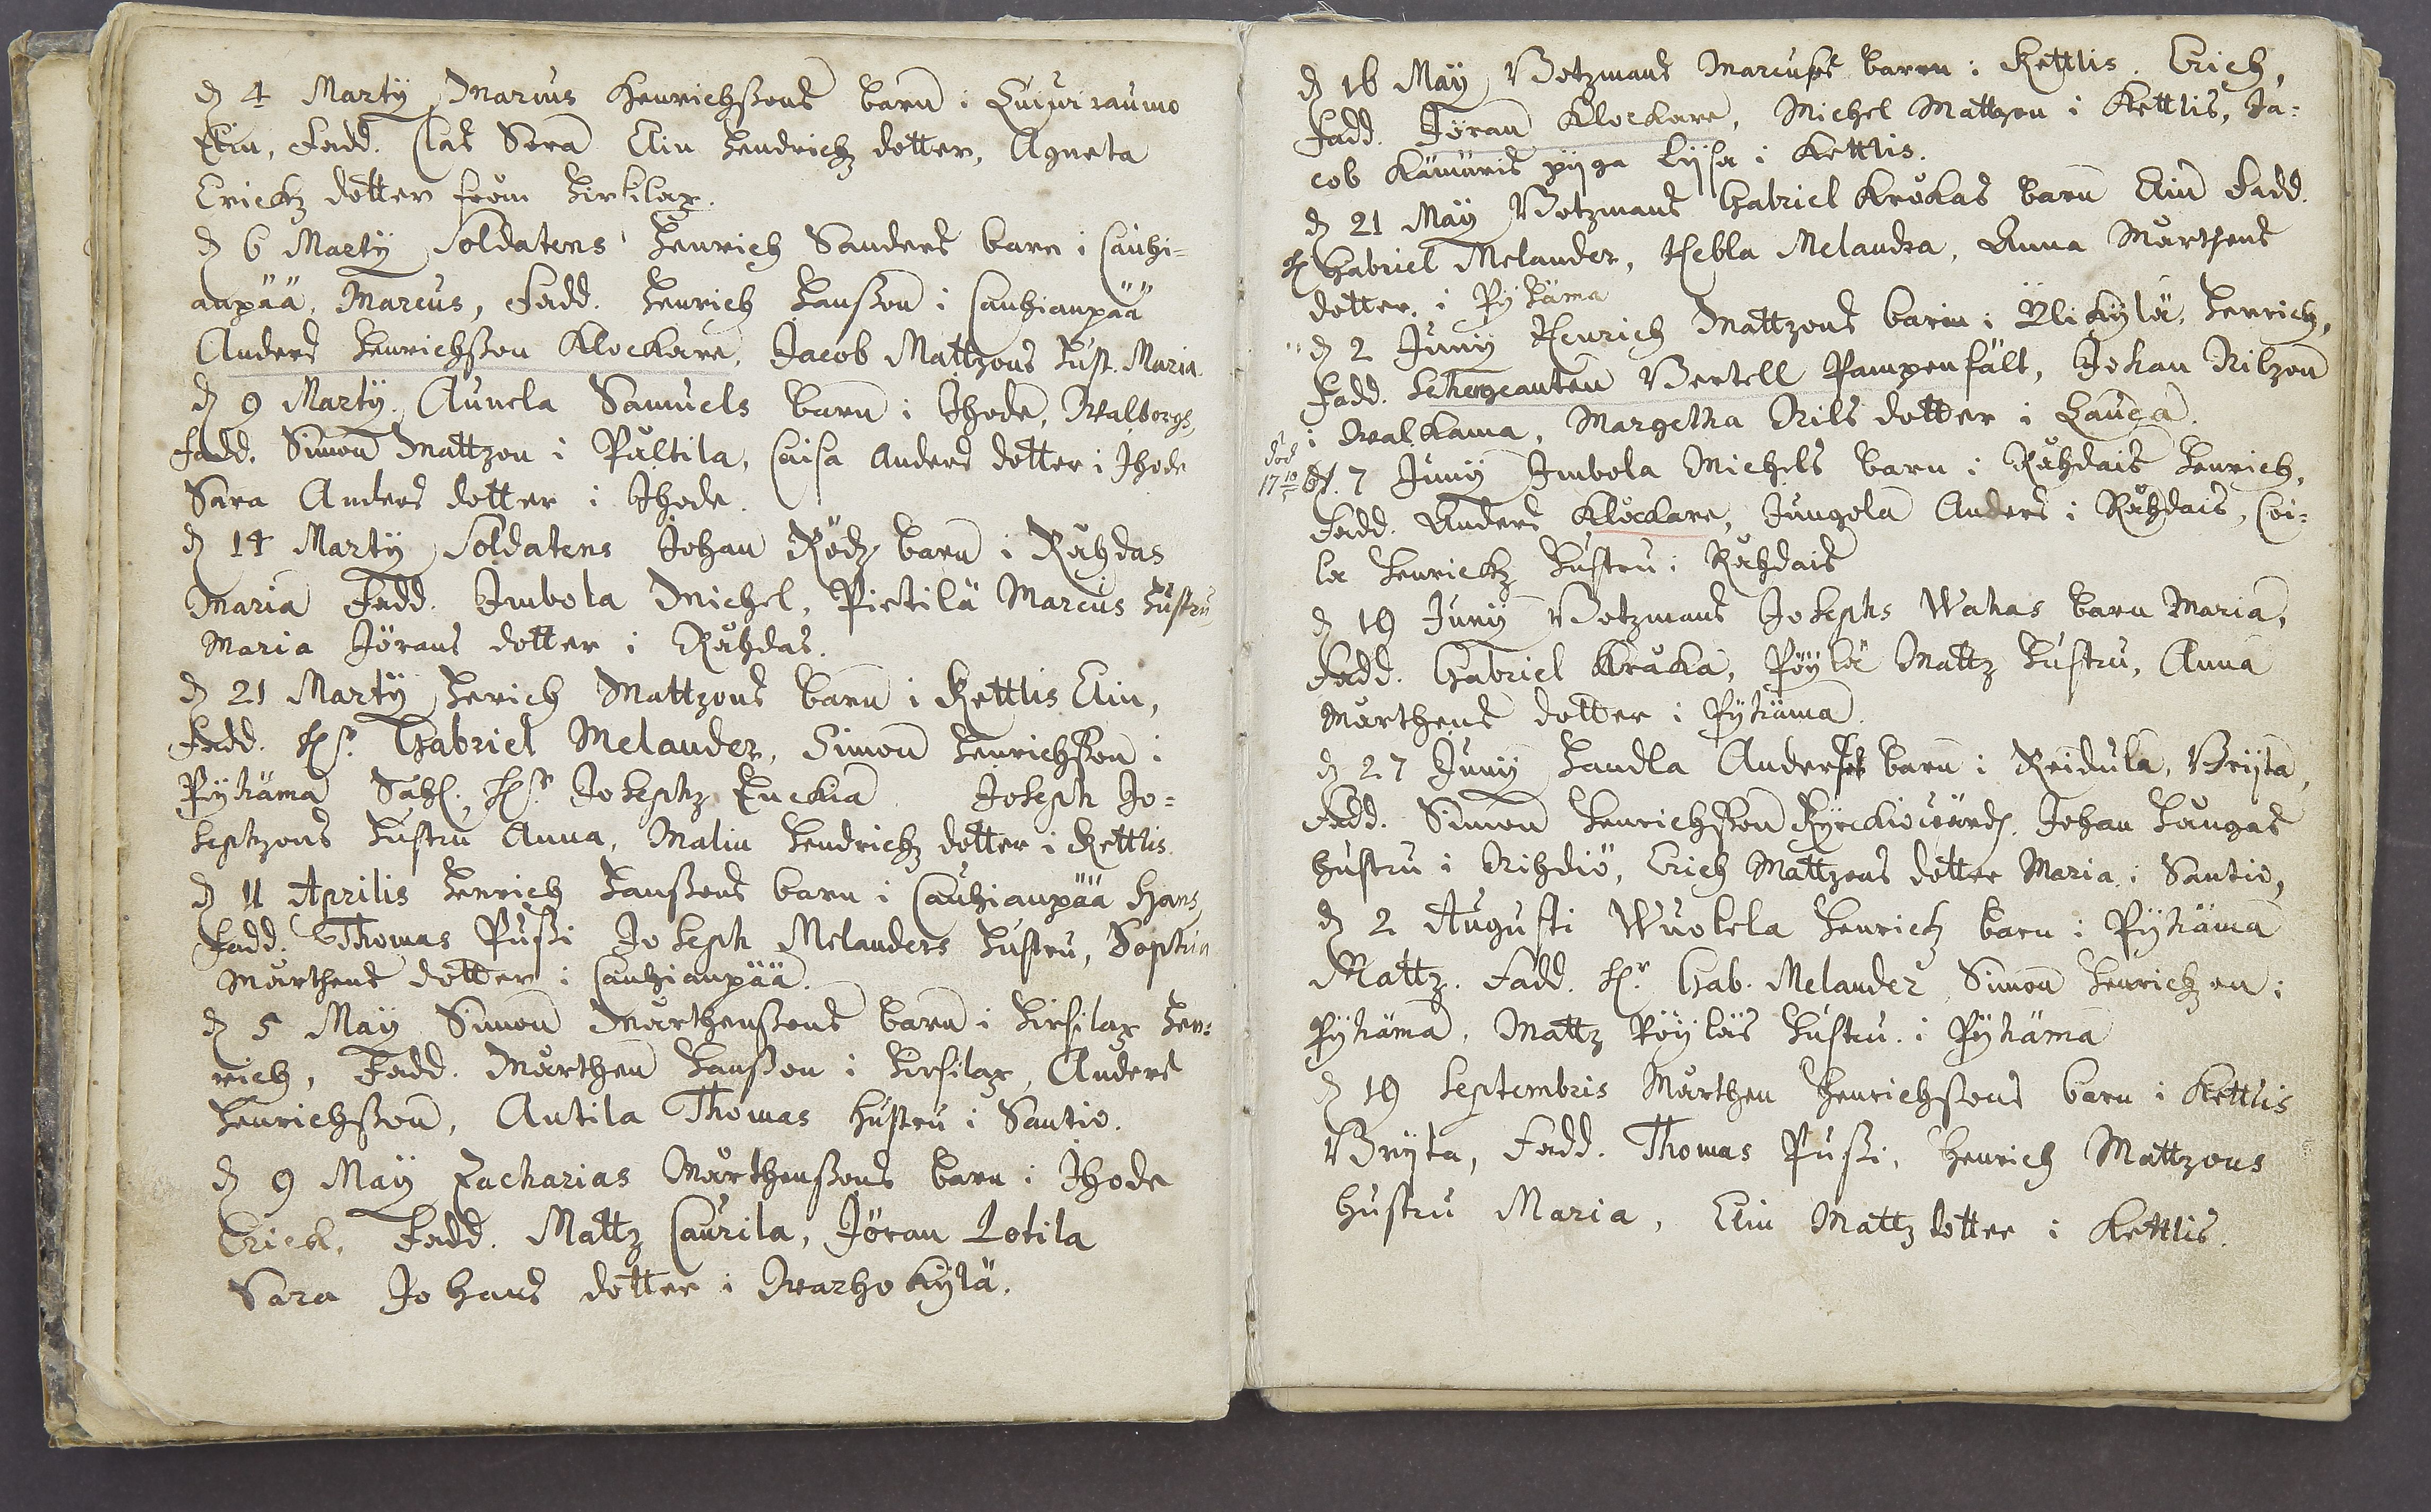 d 4 Martÿ Marcus Henrichssons barn i Luiviraumo
Elin, Fadd. Clas Sora Elin Hendrichz dotter, Agneta
Erickz dotter from Hirsilax.
d 6 Martÿ Soldatens Henrich Sanders barn i Cauhi=
anpää, Marcus, Fadd. Henrich Hansson i Cauhianpää
Anders Henrichsson Klockare, Jacob Mattzons Hust. Maria.
d 9 Martÿ. Aunela Samuels barn i Ihode, Walborgh,
Fadd. Simon Mattzon i Pältila, Caisa Anders dotter i Ihode
Sara Anders dotter i Ihode.
d 14 Martÿ Soldatens Johan Rödz barn i Råhdas
Maria Fadd. Imbola Michel, Pietilä Marcus Hustru
Maria Jörans dotter i Råhdas.
d 21 Martÿ Henrich Mattzons barn i Kettlis Elin,
Fadd. Hr. Gabriel Melander, Simon Henrichsson i
Pyhäma Sahl. Hr. Josephz Enckia Joseph Jo=
sephzons Hustru Anna, Malin Hendrichz dotter i Kettlis.
d 11 Aprilis Henrich Hanssons barn i Cauhianpää Hans,
Fadd. Thomas Pussi Joseph Melanders Hustru, Sophia
Mårthens dotter i Cauhianpää.
d 5 Maÿ Simon Mårthenssons barn i Hirsilax Hen=
rich, Fadd. Mårthen Hansson i Hirsilax, Anders
Henrichsson, Antila Thomas hustru i Santio.
d 9 Maÿ Zacharias Mårthenssons barn i Ihode
Erick, Fadd. Mattz Caurila, Jöran Lotila
Sara Johans dotter i Warhokylä.
d 16 Maÿ Botzmans Marcuses barn i Kettlis. Erich,
Fadd. Jöran Klockare, Michel Mattzon i Kettlis, Ja=
cob Kämäris pyga Lysa i Kettlis.
d 21 Maÿ Botzmans Gabriel Kråkas barn Elin Fadd.
H Gabriel Melander, Hebla Melandra, Anna Mårthens
dotter i Pyhäma
d 2 Junÿ Henrich Mattzons barn i Ylikylä, Henrich,
Fadd. Schergeanten Bertell Pampenfält, Johan Nilzon
i Walkama, Margetha Nils dotter i Lauca.
död
17 10/5 d. 7 Junÿ Imbola Michels barn i Råhdais Henrich,
Fadd. Anders Klockare, Jungola Anders i Råhdais, Coi=
la Henrickz Hustru i Råhdais
d 19 Junÿ Botzmans Josephs Wahas barn Maria,
Fadd. Gabriel Kråka, Pöylä Mattz Hustru, Anna
Mårthens dotter i Pyhäma.
d 27 Junÿ Handla Anders barn i Reidula, Brijta,
Fadd. Simon Henrichsson Kyrckiowärd, Johan Laugas
hustru i Nihdiö, Erich Mattzons dotter Maria i Santio,
d 2 Augusti Wuolela Henrickz barn i Pyhäma
Mattz. Fadd. Hr. Gab. Melander, Simon Henrichzon i
Pyhäma, Mattz Pöyläs Hustru i Pyhäma
d 19 Septembris Mårthen Henrichssons barn i Kettlis
Brijta, Fadd. Thomas Pussi, Henrich Mattzons
hustru Maria, Elin Mattz dotter i Kettlis.